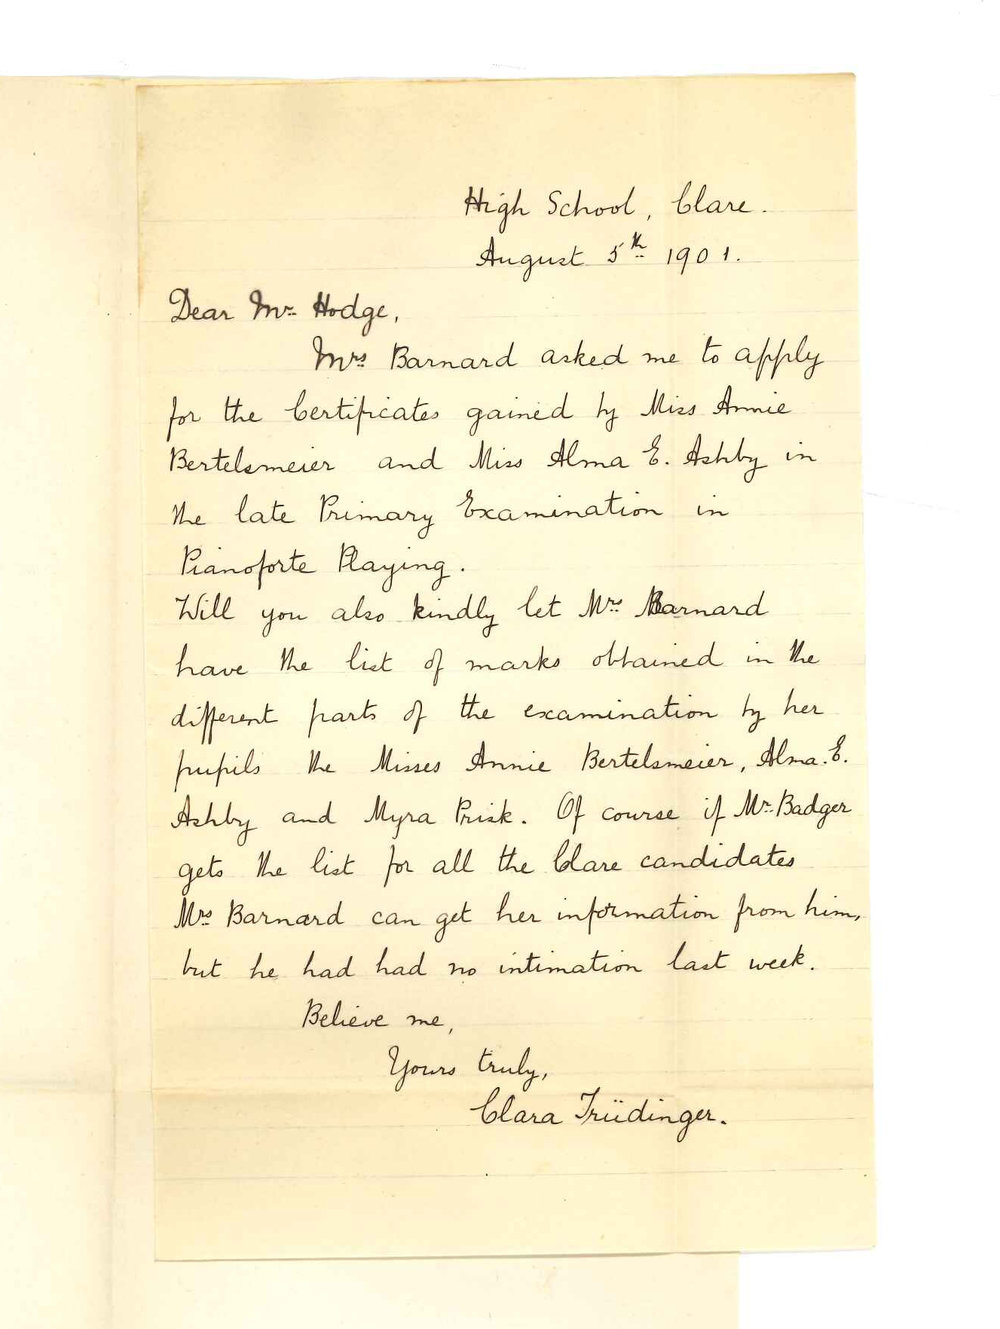 High School, Clare.
August 5th 1901.
Dear Mr Hodge,
Mrs Barnard asked me to apply
for the Certificates gained by Miss Annie
Bertelsmeier and Miss Alma E. Ashby in
the late Primary Examination in
Pianoforte Playing.
Will you also kindly let Mrs Barnard
have the list of marks obtained in the
different parts of the examination by her
pupils the Misses Annie Bertelsmeier, Alma. E.
Ashby and Myra Prisk. Of course if Mr Badger
gets the list for all the Clare candidates
Mrs Barnard can get her information from him,
but he had had no intimation last week.
Believe me,
Yours truly,
Clara Trüdinger.